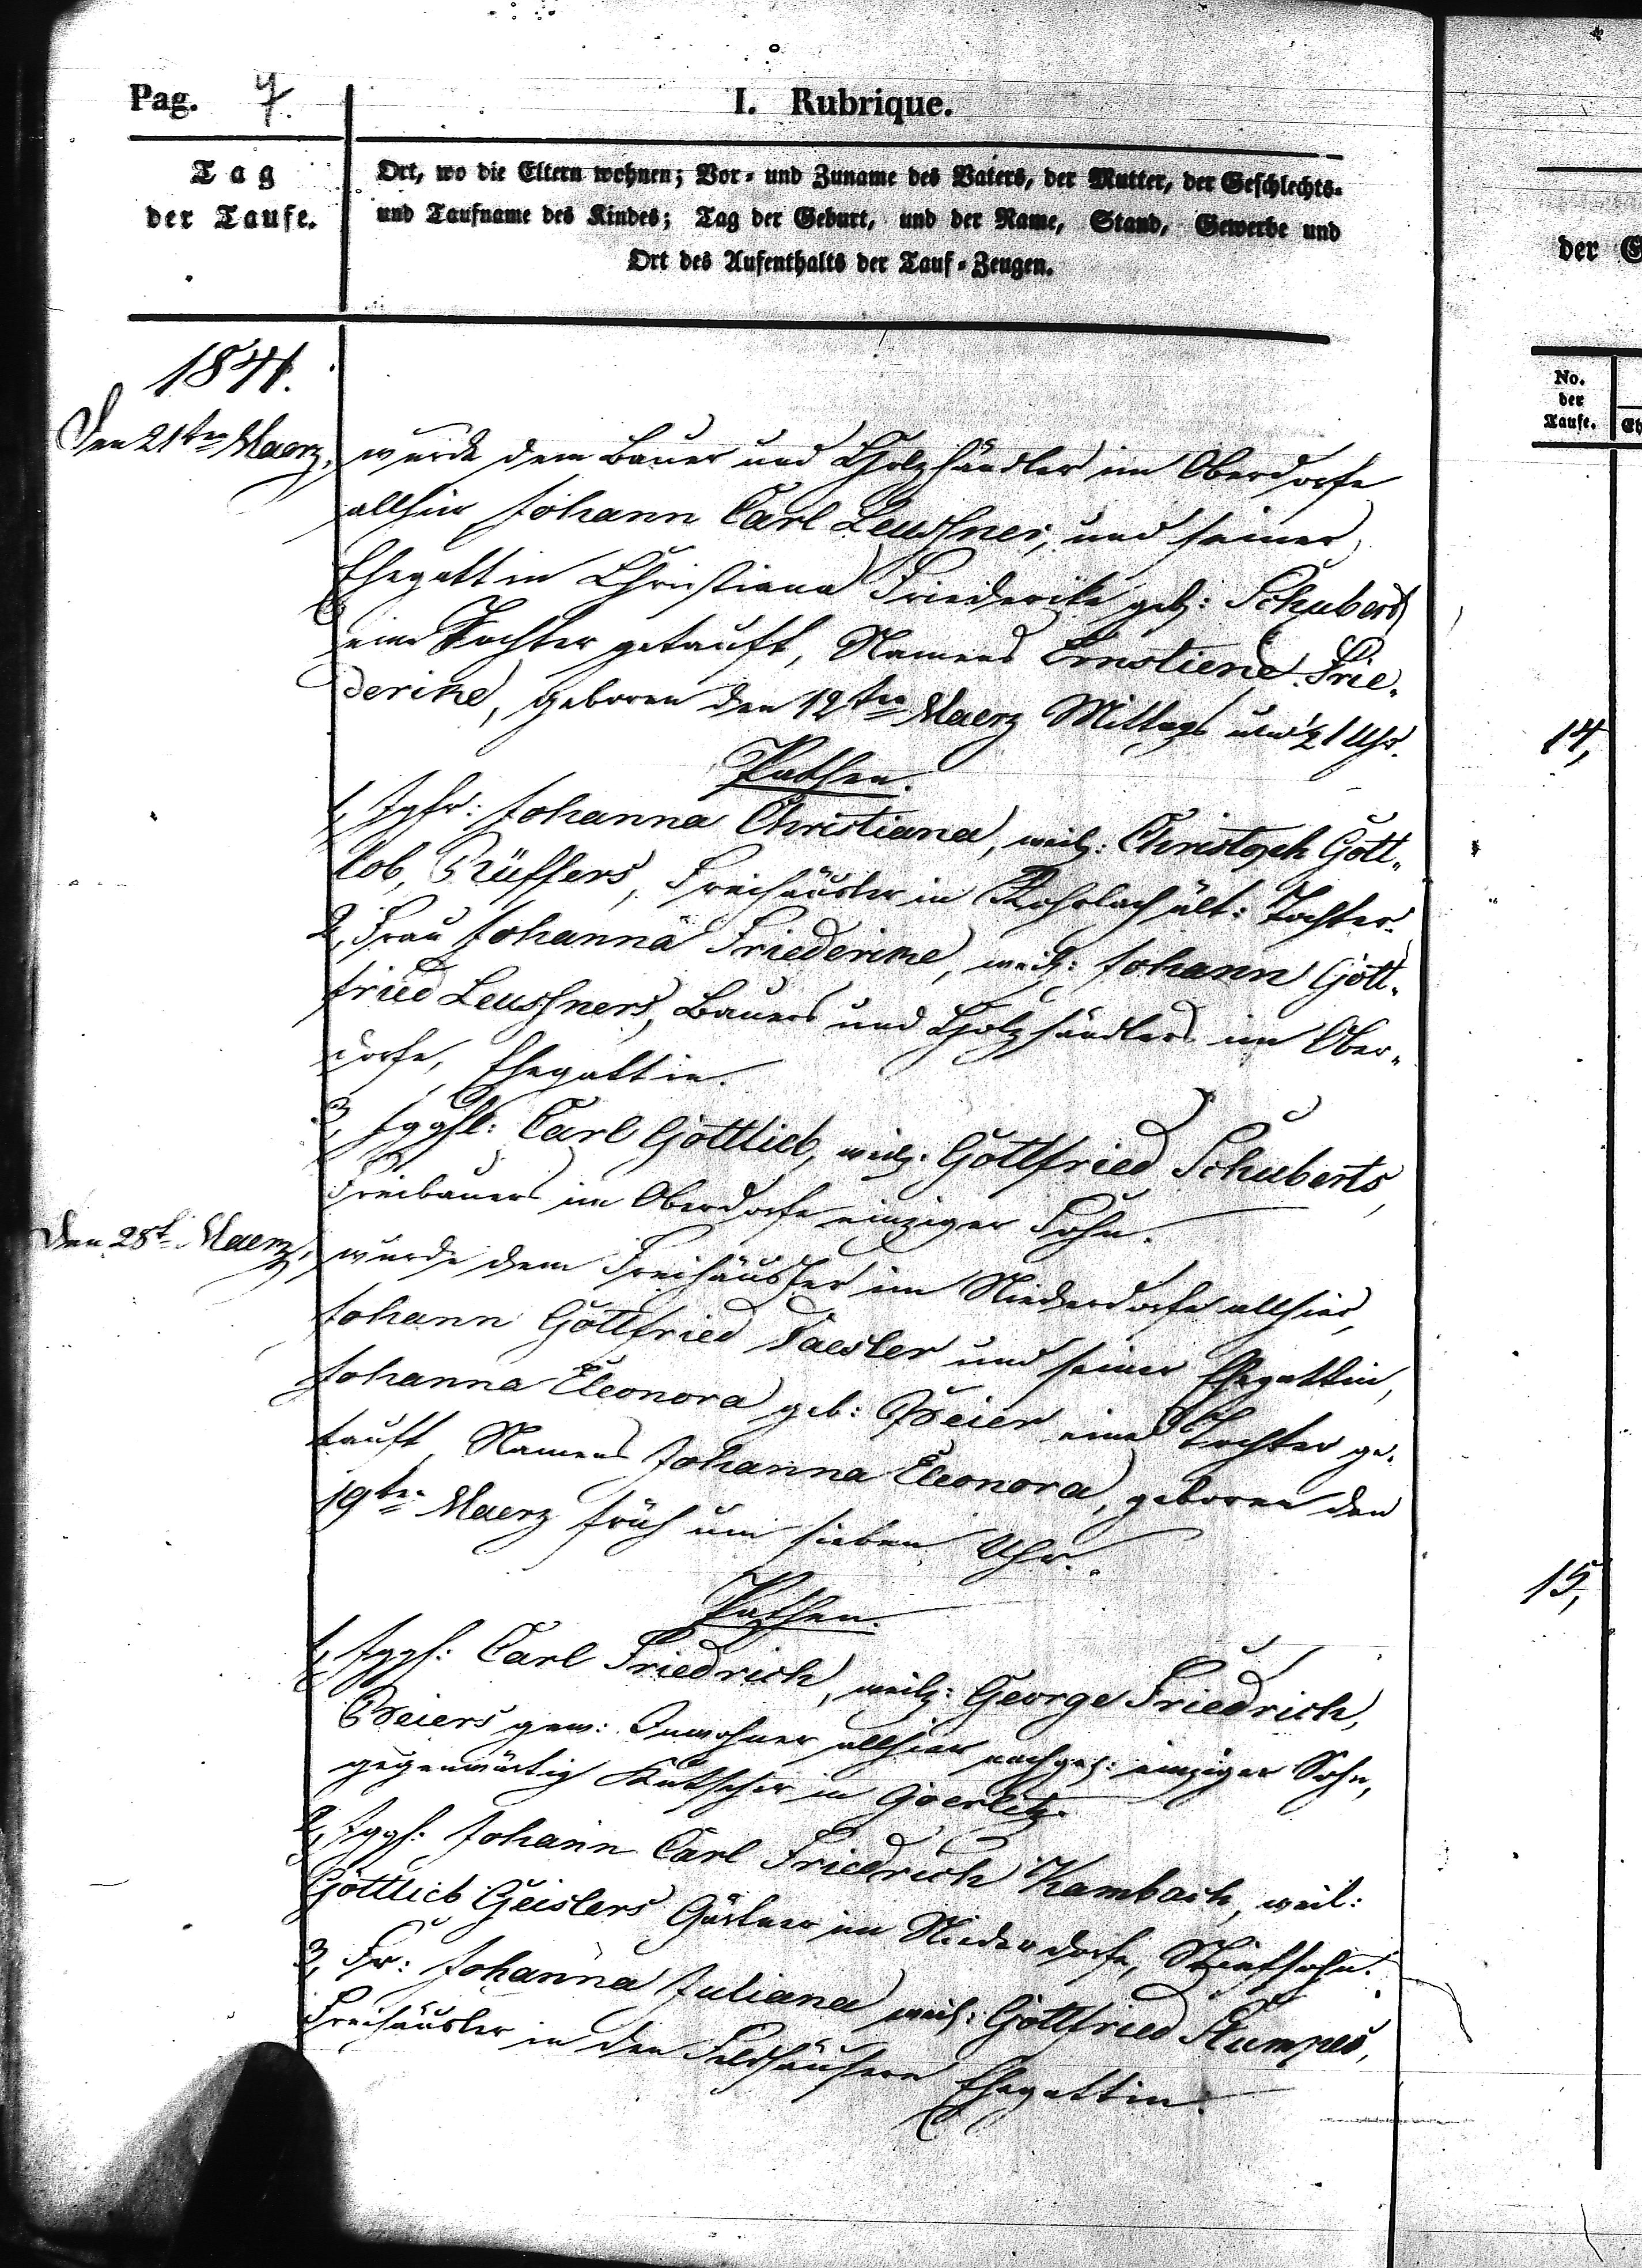 Pag. 7.
I. Rubrique.
Tag
der Taufe.
Ort, wo die Eltern wohnen; Vor- und Zuname des Vaters, der Mutter, der Geschlechts-
und Taufname des Kindes; Tag der Geburt, und der Name, Stand, Gewerbe und
Ort des Aufenthalts der Tauf-Zeugen.
1841.
Den 21ten Maerz,
wurde dem Bauer und Holzhändler im Oberdorfe
allhier Johann Carl Leuschner, und seiner
Ehegattin Christiana Friederike geb: Schubert
eine Tochter getauft, Namens Ernstiene Frie-
derike, geboren den 12ten Maerz Mittags um ½ 1 Uhr.
Pathen.
1, Jgfr: Johanna Christiana, Christoph Gott-
lob, Rüffers, Freihäusler in Rohrlach ält: Tochter.
2, Frau Johanna Friederike, Johann Gott-
fried Leuschners, Bauers und Holzhändlers im Ober-
dorfe, Ehegattin.
3, Jggsl: Carl Gottlieb, Gottfried Schuberts,
Freibauers im Oberdorfe einziger Sohn.
Den 28t Maerz,
wurde dem Freihäusler im Niederdorfe allhier,
Johann Gottfried Taesler und seiner Ehegattin,
Johanna Eleonora geb: Beier eine Tochter ge-
tauft, Namens Johanna Eleonora, geboren den
19ten Maerz früh um sieben Uhr.
Pathen.
1, Jggs: Carl Friedrich, weil: George Friedrich,
Beiers gew: Inwohner allhier nachgel: einziger Sohn,
gegenwärtig Kutscher in Goerlitz.
2, Jggs: Johann Carl Friedrich Kambach, weil:
Gottlieb Geislers Gärtner im Niederdorfe, Stiefsohn.
3, Fr: Johanna Juliana Gottfried Stumpes,
Freihäusler in den Feldhäusern Ehegattin.
der
No.
der
Taufe.
14,
15,